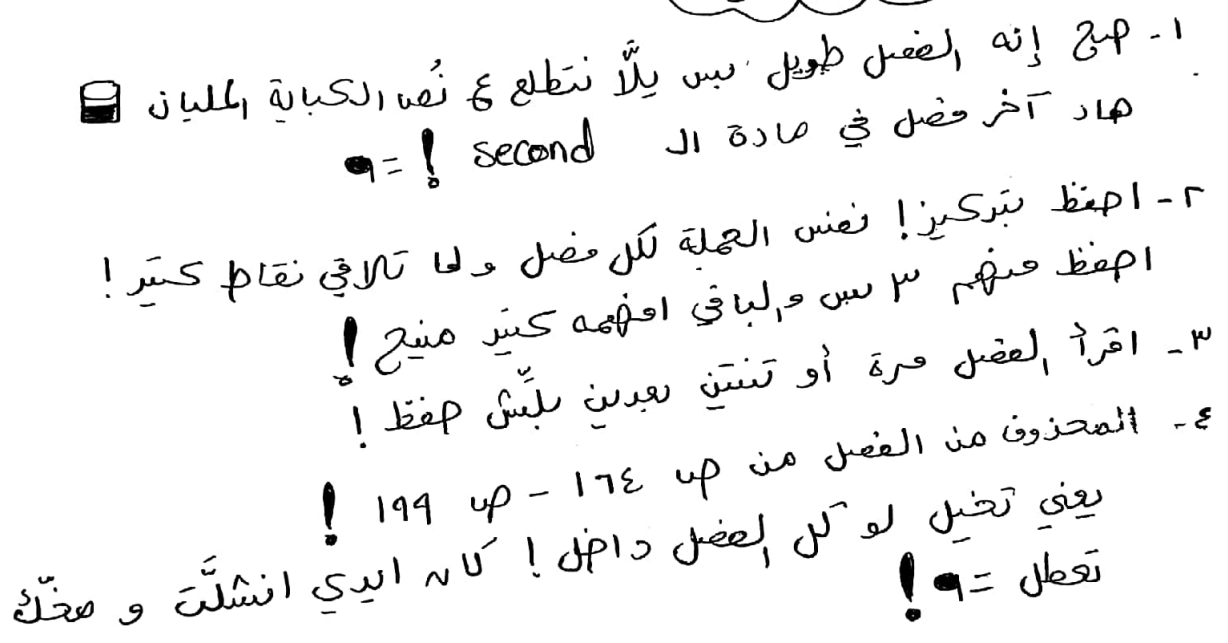 ١- صح إنه الفصل طويل بس يلَّا نتطلع ع نُص الكباية المليان
هاد آخر فصل في مادة الـ second ! =٩
٢- احفظ بتركيز! نفس الجملة لكل فصل ولما تلاقي نقاط كتير!
احفظ منهم ٣ بس والباقي افهمه كتير منيح!
٣- اقرأ الفصل مرة أو تنتين بعدين بلِّش حفظ!
٤- المحذوف من الفصل من ص ١٦٤ - ص ١٩٩ !
يعني تخيل لو كل الفصل داخل! كان ايدي انشلَّت و مخّك
تعطل =٩ !